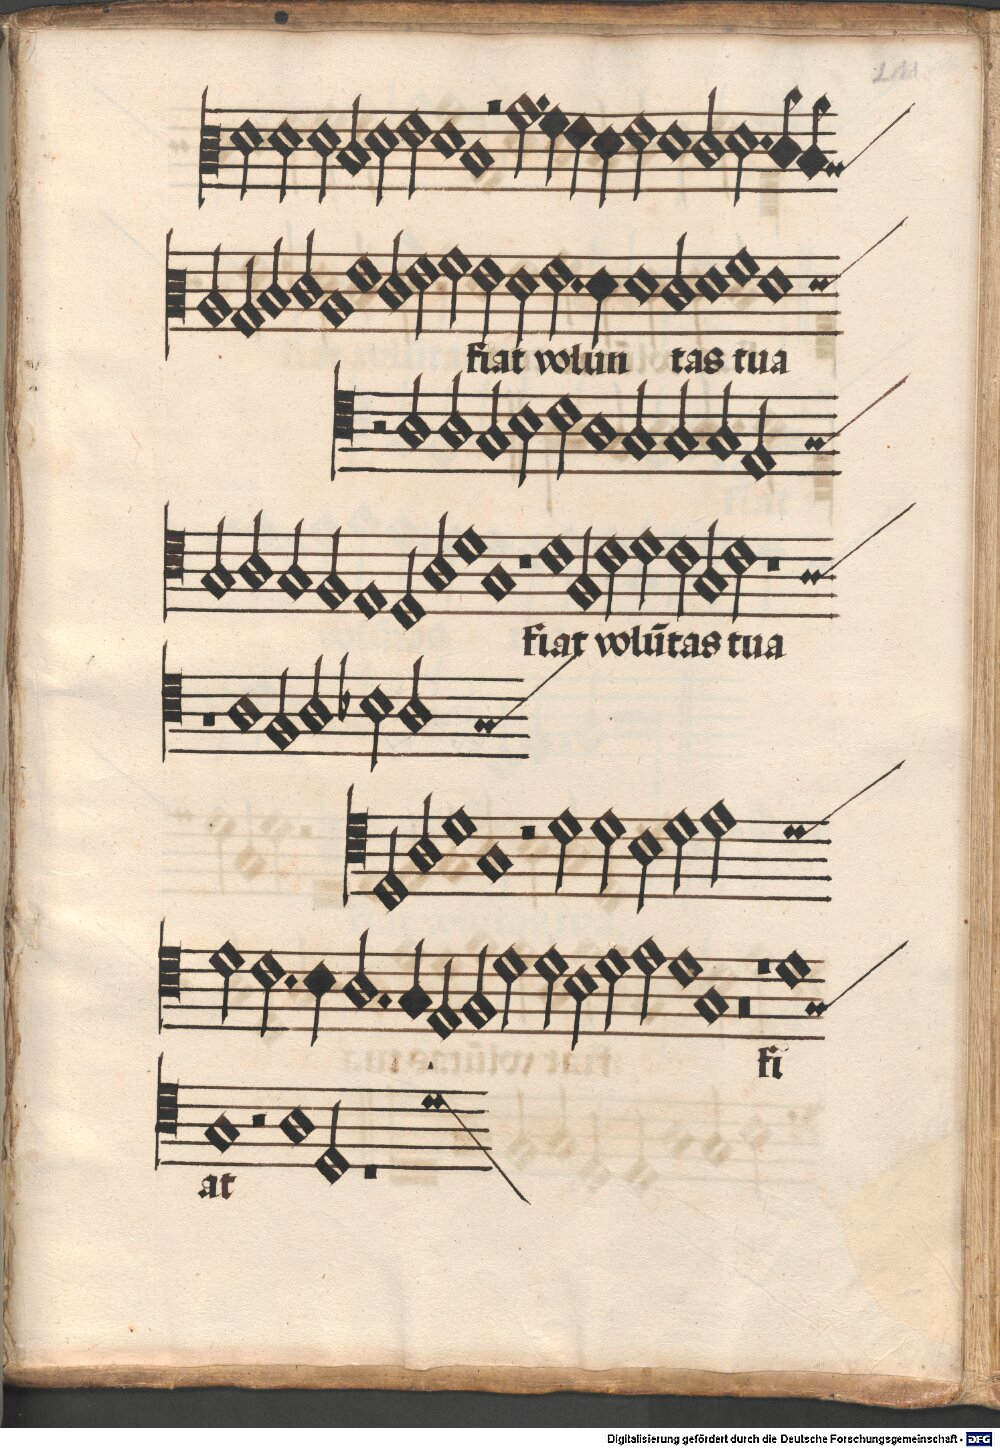 211
fiat volun tas tua
fiat volūtas tua
fi
at
Digitalisierung gefördert durch die Deutsche Forschungsgemeinschaft - DFG